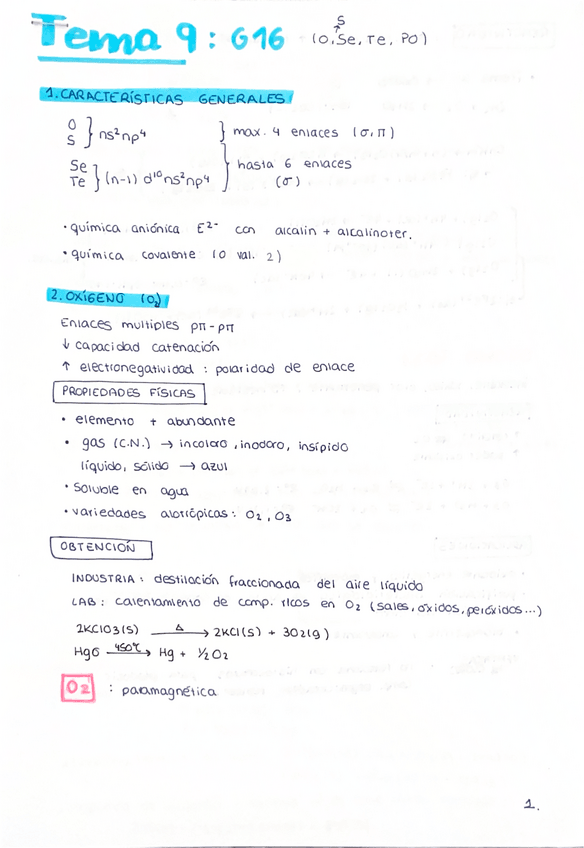 Tema 9: G16 (O, S, Se, Te, PO)
1. CARACTERÍSTICAS GENERALES
O
S } ns²np⁴ } max. 4 enlaces (σ, π)
Se
Te } (n-1) d¹⁰ns²np⁴ } hasta 6 enlaces
(σ)
• química aniónica E²⁻ con alcalin + alcalinoter.
• química covalente (O val. 2)
2. OXÍGENO (O₂)
Enlaces multiples pπ - pπ
↓ capacidad catenación
↑ electronegatividad : polaridad de enlace
PROPIEDADES FÍSICAS
• elemento + abundante
• gas (C.N.) → incoloro, inodoro, insípido
líquido, sólido → azul
• soluble en agua
• variedades alotrópicas: O₂, O₃
OBTENCIÓN
INDUSTRIA: destilación fraccionada del aire líquido
LAB: calentamiento de comp. ricos en O₂ (sales, óxidos, peróxidos...)
2KClO3(s) —Δ→ 2KCl(s) + 3O2(g)
HgO —450ºC→ Hg + ½O₂
O₂ : paramagnética
1.